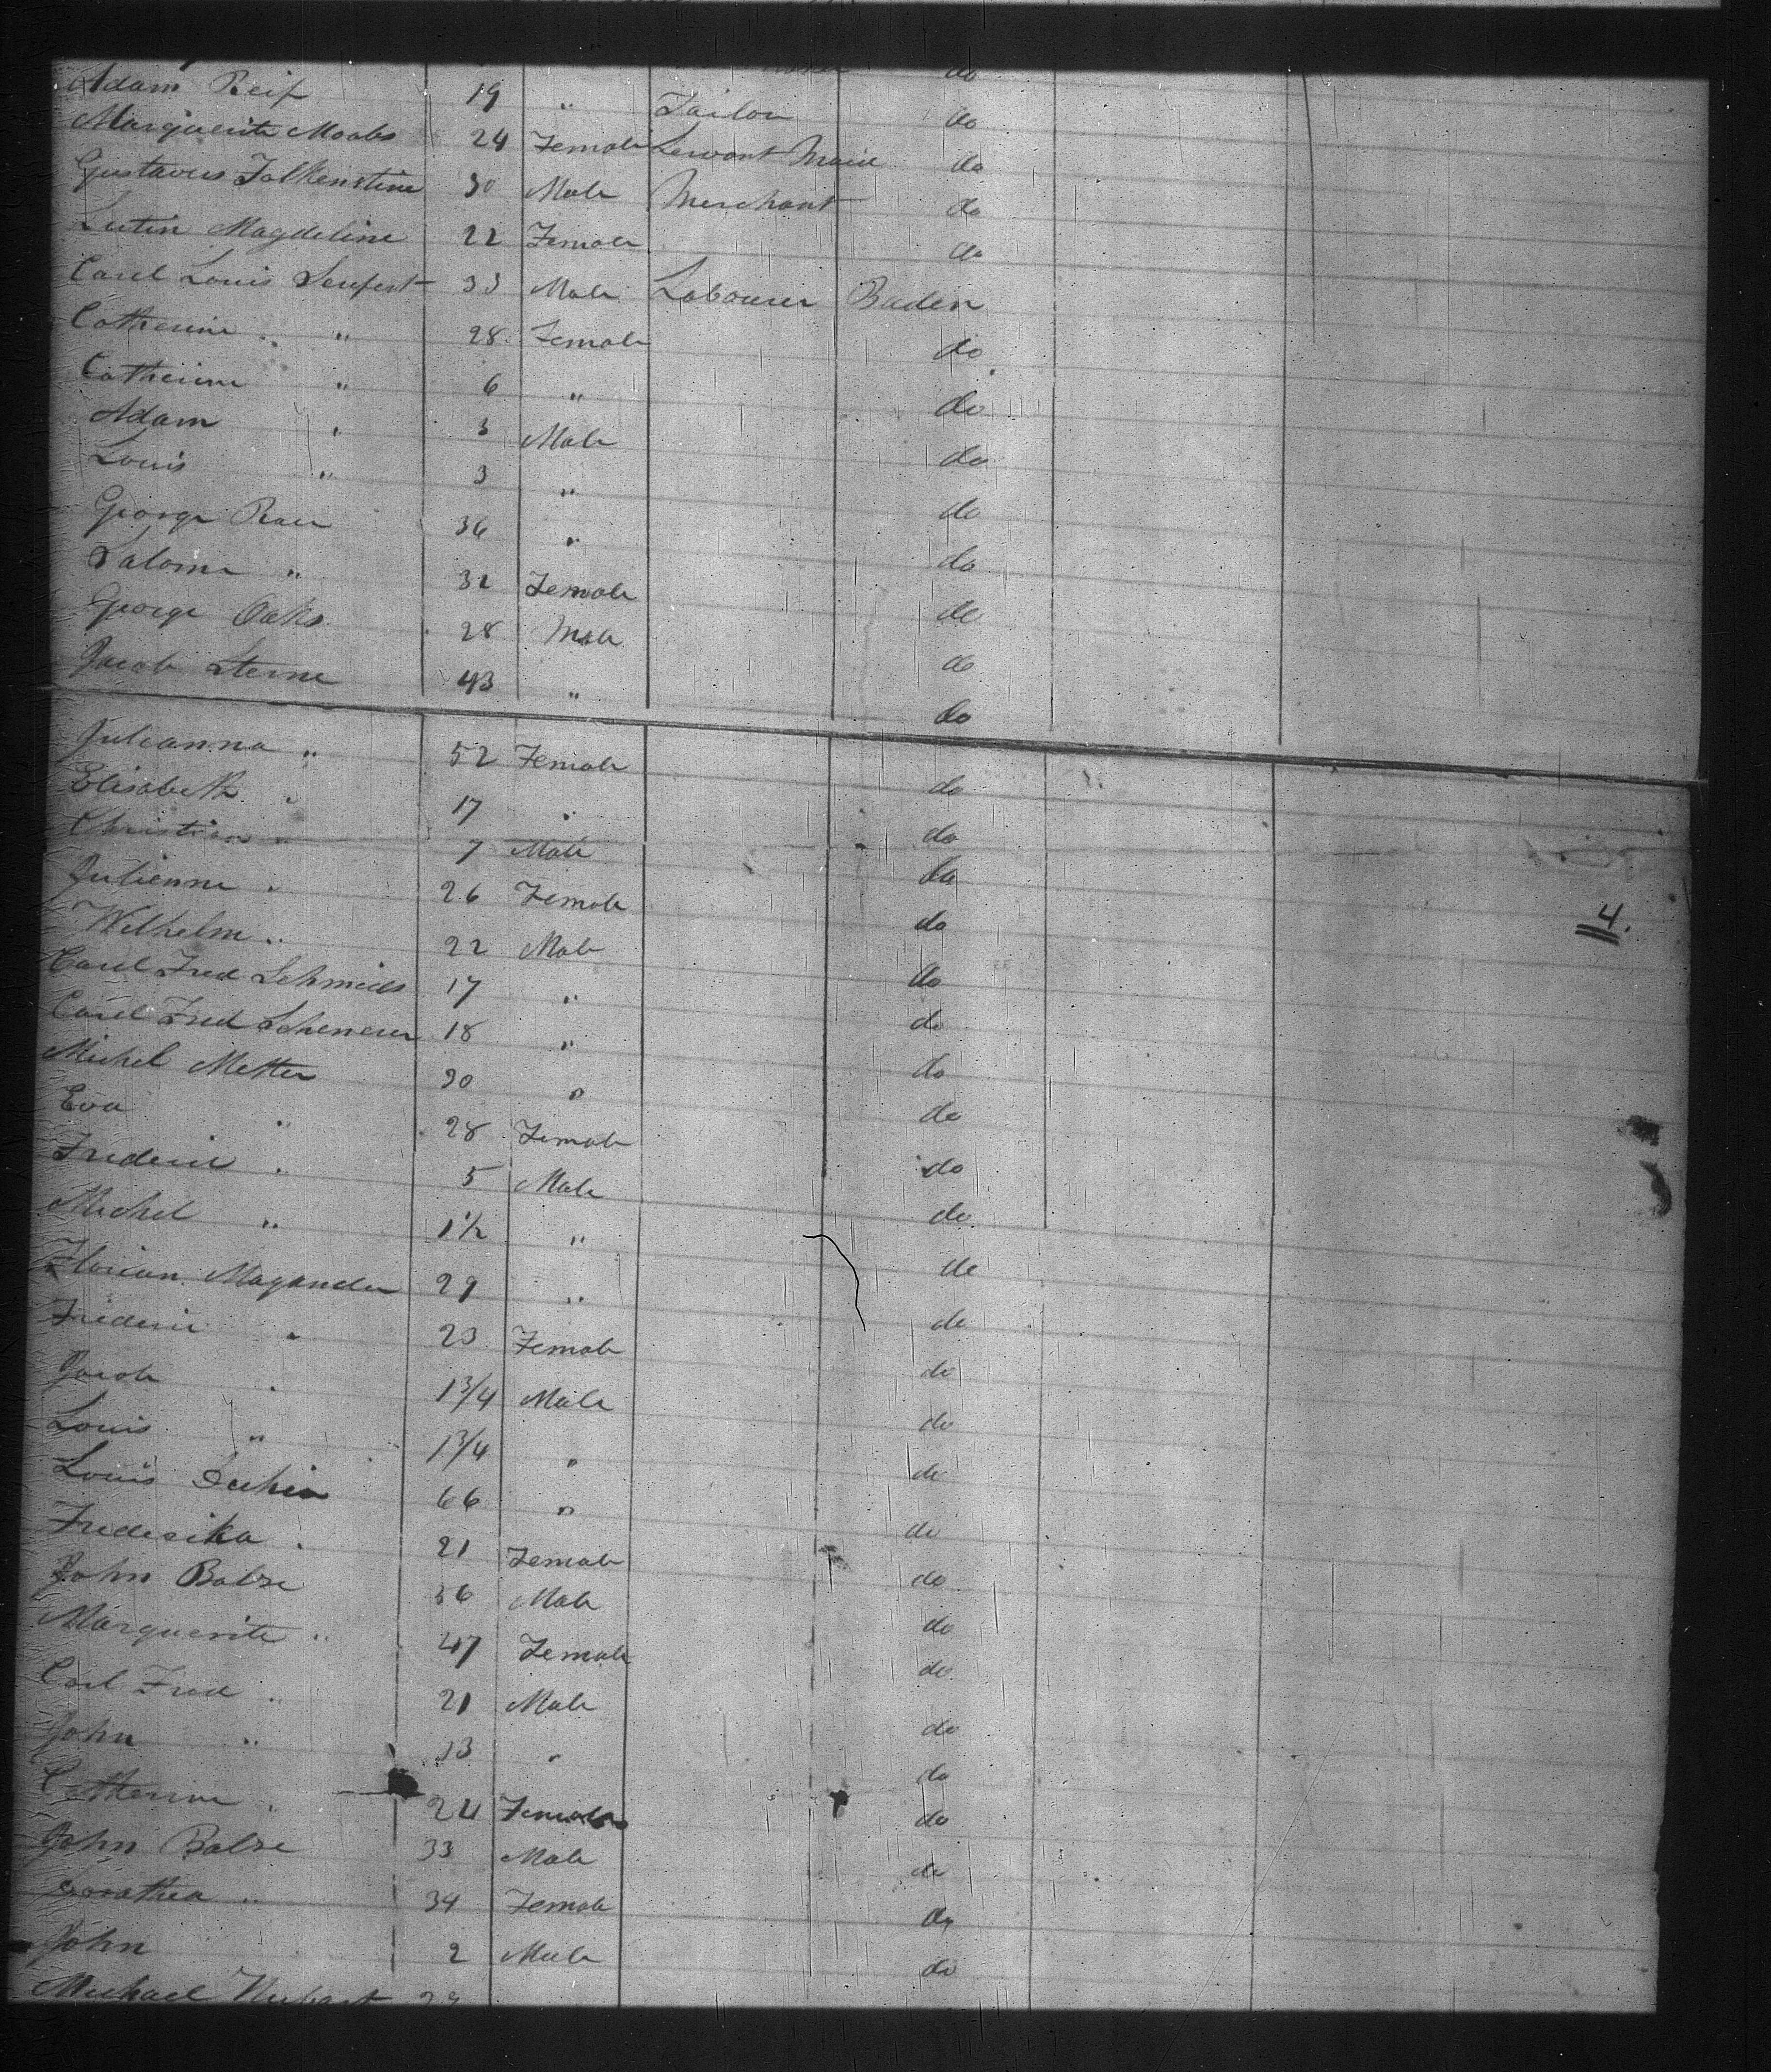 do
Adam Reif 19 " Tailor do
Marguerite Moabs 24 Female Servant Maid do
Gustavus Falkenstine 30 Male Merchant do
Lutin Magdeline 22 Female do
Carel Louis Seufert 33 Male Labourer Baden
Catherine " 28 Female do
Catherine " 6 " do
Adam " 3 Male do
Louis " 3 " do
George Rau 36 " do
Salome " 32 Female do
George Oaks 28 Male do
Jacob Sterne 43 " do
Julianna " 52 Female do
Elisabeth " 17 " do
Christian " 7 Male do
Julienne " 26 Female do
Wilhelm " 22 Male do
4.
Carel Fred Schmids 17 " do
Carel Fred 18 " do
Michel Metter 30 " do
Eva " 28 Female do
Frederic " 5 Male do
Michel " 1 1/2 " do
Florian Magander 29 " do
Frederic " 23 Female do
Jacob " 1 3/4 Male do
Louis " 1 3/4 " do
Louis 66 " do
Frederika " 21 Female do
John Balze 36 Male do
Marguerite " 47 Female do
Carl Fred " 21 Male do
John " 13 " do
Catherine " 24 Female do
John Balze 33 Male do
Dorathea " 34 Female do
John 2 Male do
Michael